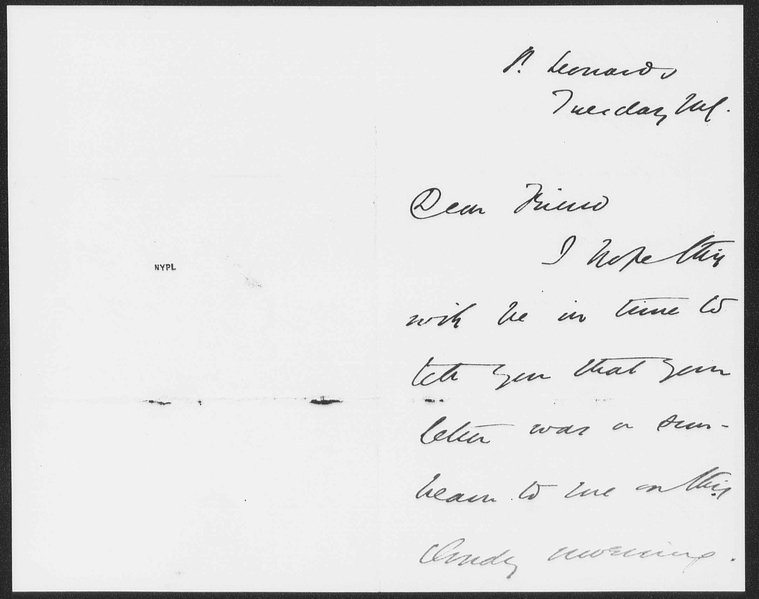 NYPL
St. Leonards
Tuesday
Dear Friend
I hope this
will be in time to
tell you that your
letter was a sun-
beam to me on this
cloudy morning.